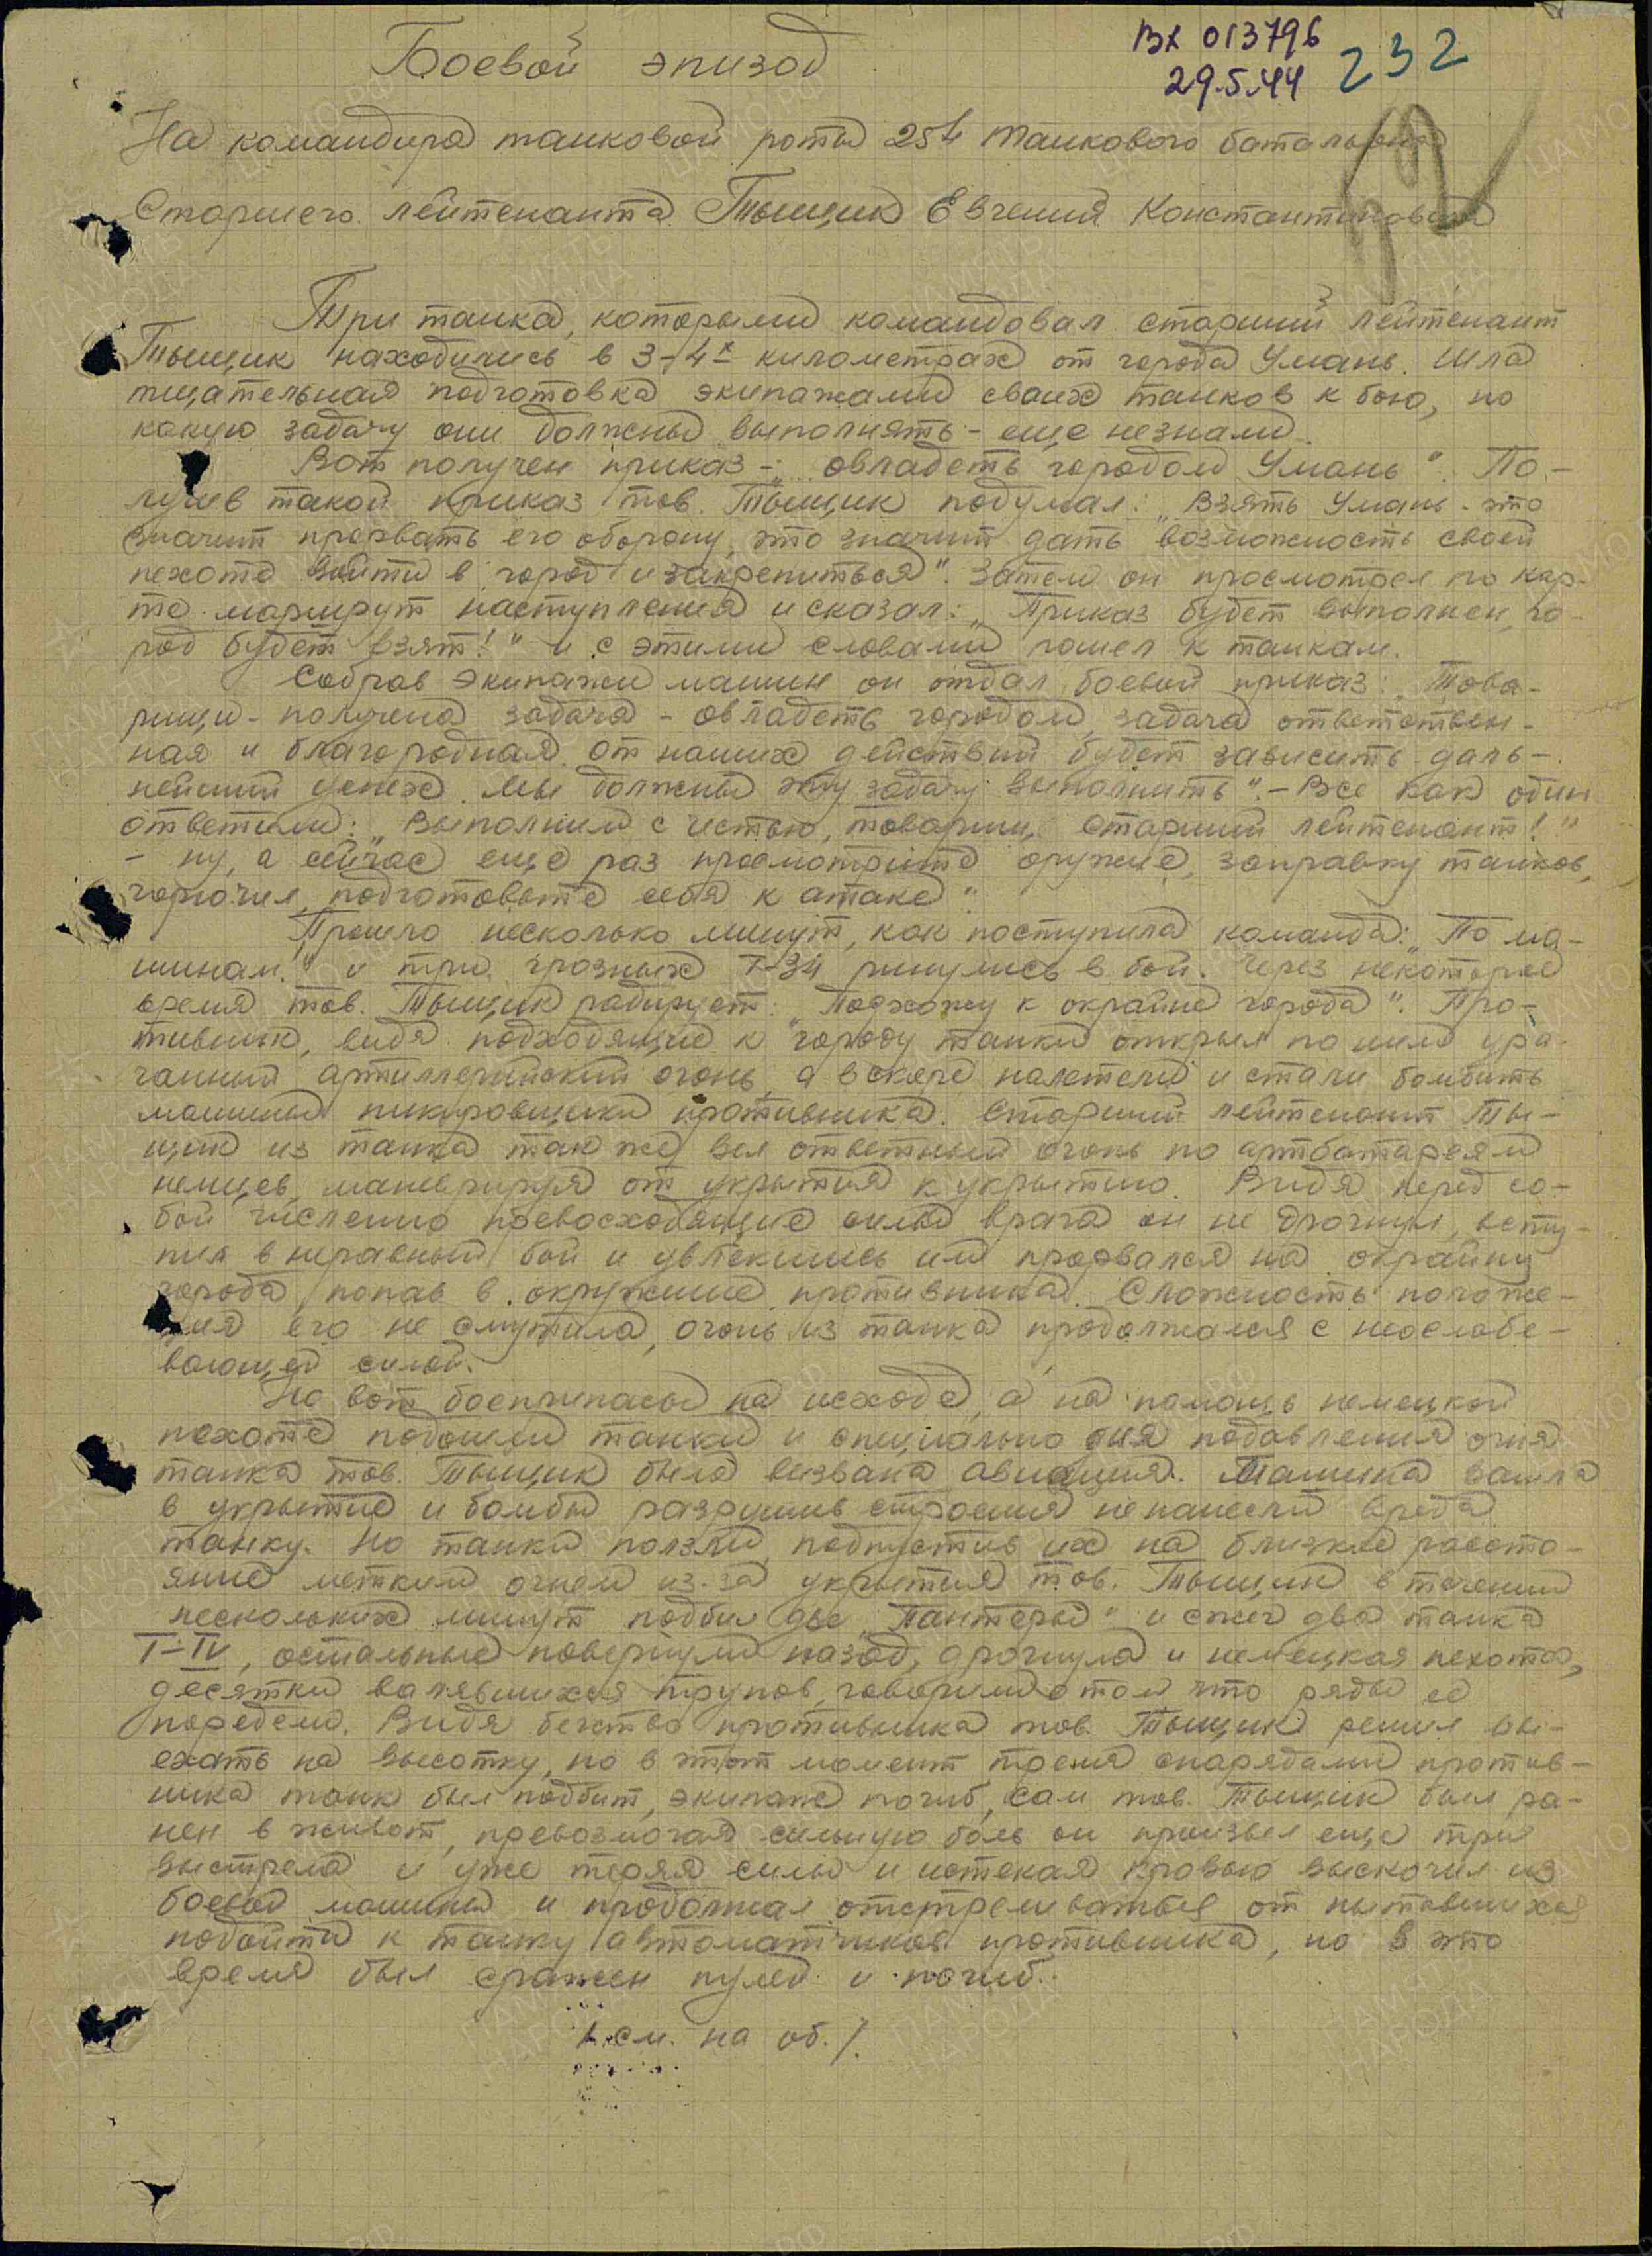 Боевой эпизод
Вх 013796
29.5.44
232
На командира танковой роты 254 танкового батальона
Старшего лейтенанта Тыщик Евгения Константиновича
Три танка, которыми командовал старший лейтенант
Тыщик находились в 3-4х километрах от города Умань. Шла
тщательная подготовка экипажами своих танков к бою, но
какую задачу они должны выполнять - еще незнали.
Вот получен приказ - "овладеть городом Умань". По-
лучив такой приказ тов. Тыщик подумал: "Взять Умань - это
значит прорвать его оборону, это значит дать возможность своей
пехоте войти в город и закрепиться". Затем он просмотрел по кар-
те маршрут наступления и сказал: "Приказ будет выполнен, го-
род будет взят!" и с этими словами пошел к танкам.
Собрав экипажи машин он отдал боевой приказ: "Това-
рищи - получена задача - овладеть городом, задача ответствен-
ная и благородная. От наших действий будет зависить даль-
нейший успех. Мы должны эту задачу выполнить". - Все как один
ответили: "Выполним с честью, товарищ старший лейтенант!"
- ну, а сейчас еще раз просмотрите оружие, заправку танков,
горючим, подготовьте себя к атаке".
Прошло несколько минут, как поступила команда: "По ма-
шинам." и три грозных Т-34 ринулись в бой. Через некоторое
время тов. Тыщик радирует: "Подхожу к окраине города". Про-
тивник, видя подходящие к городу танки открыл по ним ура-
ганный артиллерийский огонь, а вскоре налетели и стали бомбить
машины пикировщики противника. Старший лейтенант Ты-
щик из танка так же вел ответный огонь по артбатареям
немцев, маневрируя от укрытия к укрытию. Видя перед со-
бой численно превосходящие силы врага он не дрогнул, всту-
пил в неравный бой и увлекшись им прорвался на окраину
города, попав в окружение противника. Сложность положе-
ния его не смутила, огонь из танка продолжался с неослабе-
вающей силой.
Но вот боеприпасы на исходе, а на помощь немецкой
пехоте подошли танки и специально для подавления огня
танка тов. Тыщик была вызвана авиация. Машина вошла
в укрытие и бомбы разрушив строения не нанесли вреда
танку. Но танки ползли, подпустив их на близкое рассто-
яние метким огнем из-за укрытия тов. Тыщик в течении
нескольких минут подбил две "Пантеры" и сжег два танка
Т-IV, остальные повернули назад, дрогнула и немецкая пехота,
десятки валявшихся трупов, говорили о том что ряды ее
поредели. Видя бегство противника тов. Тыщик решил вы-
ехать на высотку, но в этот момент тремя снарядами против-
ника танк был подбит, экипаж погиб, сам тов. Тыщик был ра-
нен в живот, превозмогая сильную боль он произвел еще три
выстрела и уже теряя силы и истекая кровью выскочил из
боевой машины и продолжал отстреливаться от пытавшихся
подойти к танку автоматчиков противника, но в это
время был сражен пулей и погиб.
/.см. на об./.